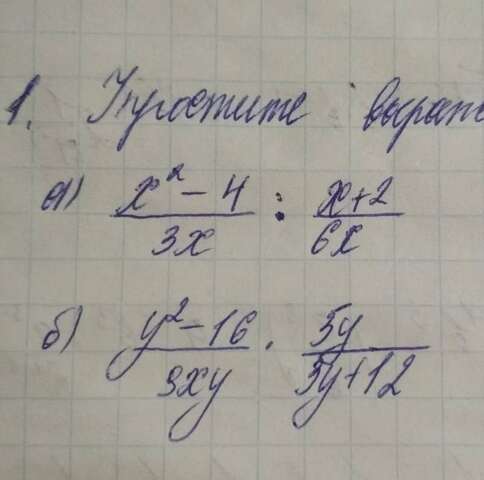 1. Упростите выраж
а) x² - 4 / 3x : x+2 / 6x
б) y² - 16 / 3xy · 5y / 3y+12